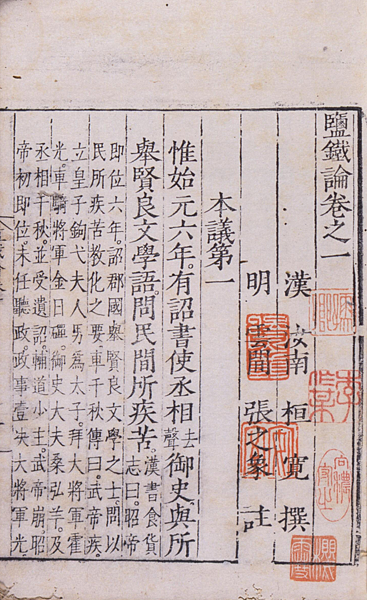 鹽鐵論卷之一
漢 汝南 桓寬 撰
明 雲間 張之象 註
本議第一
惟始元六年。有詔書使丞相去聲御史與所
舉賢良文學語。問民間所疾苦。漢書食貨志曰。昭帝
即位六年。詔郡國舉賢良文學之士問以
民所疾苦教化之要車千秋傳曰。武帝疾。
立皇子鉤弋夫人男爲太子。拜大將軍霍
光。車騎將軍金日磾。御史大夫桑弘羊。及
丞相千秋。並受遺詔。輔道小主。武帝崩昭
帝初即位。未任聽政。政事壹決大將軍光